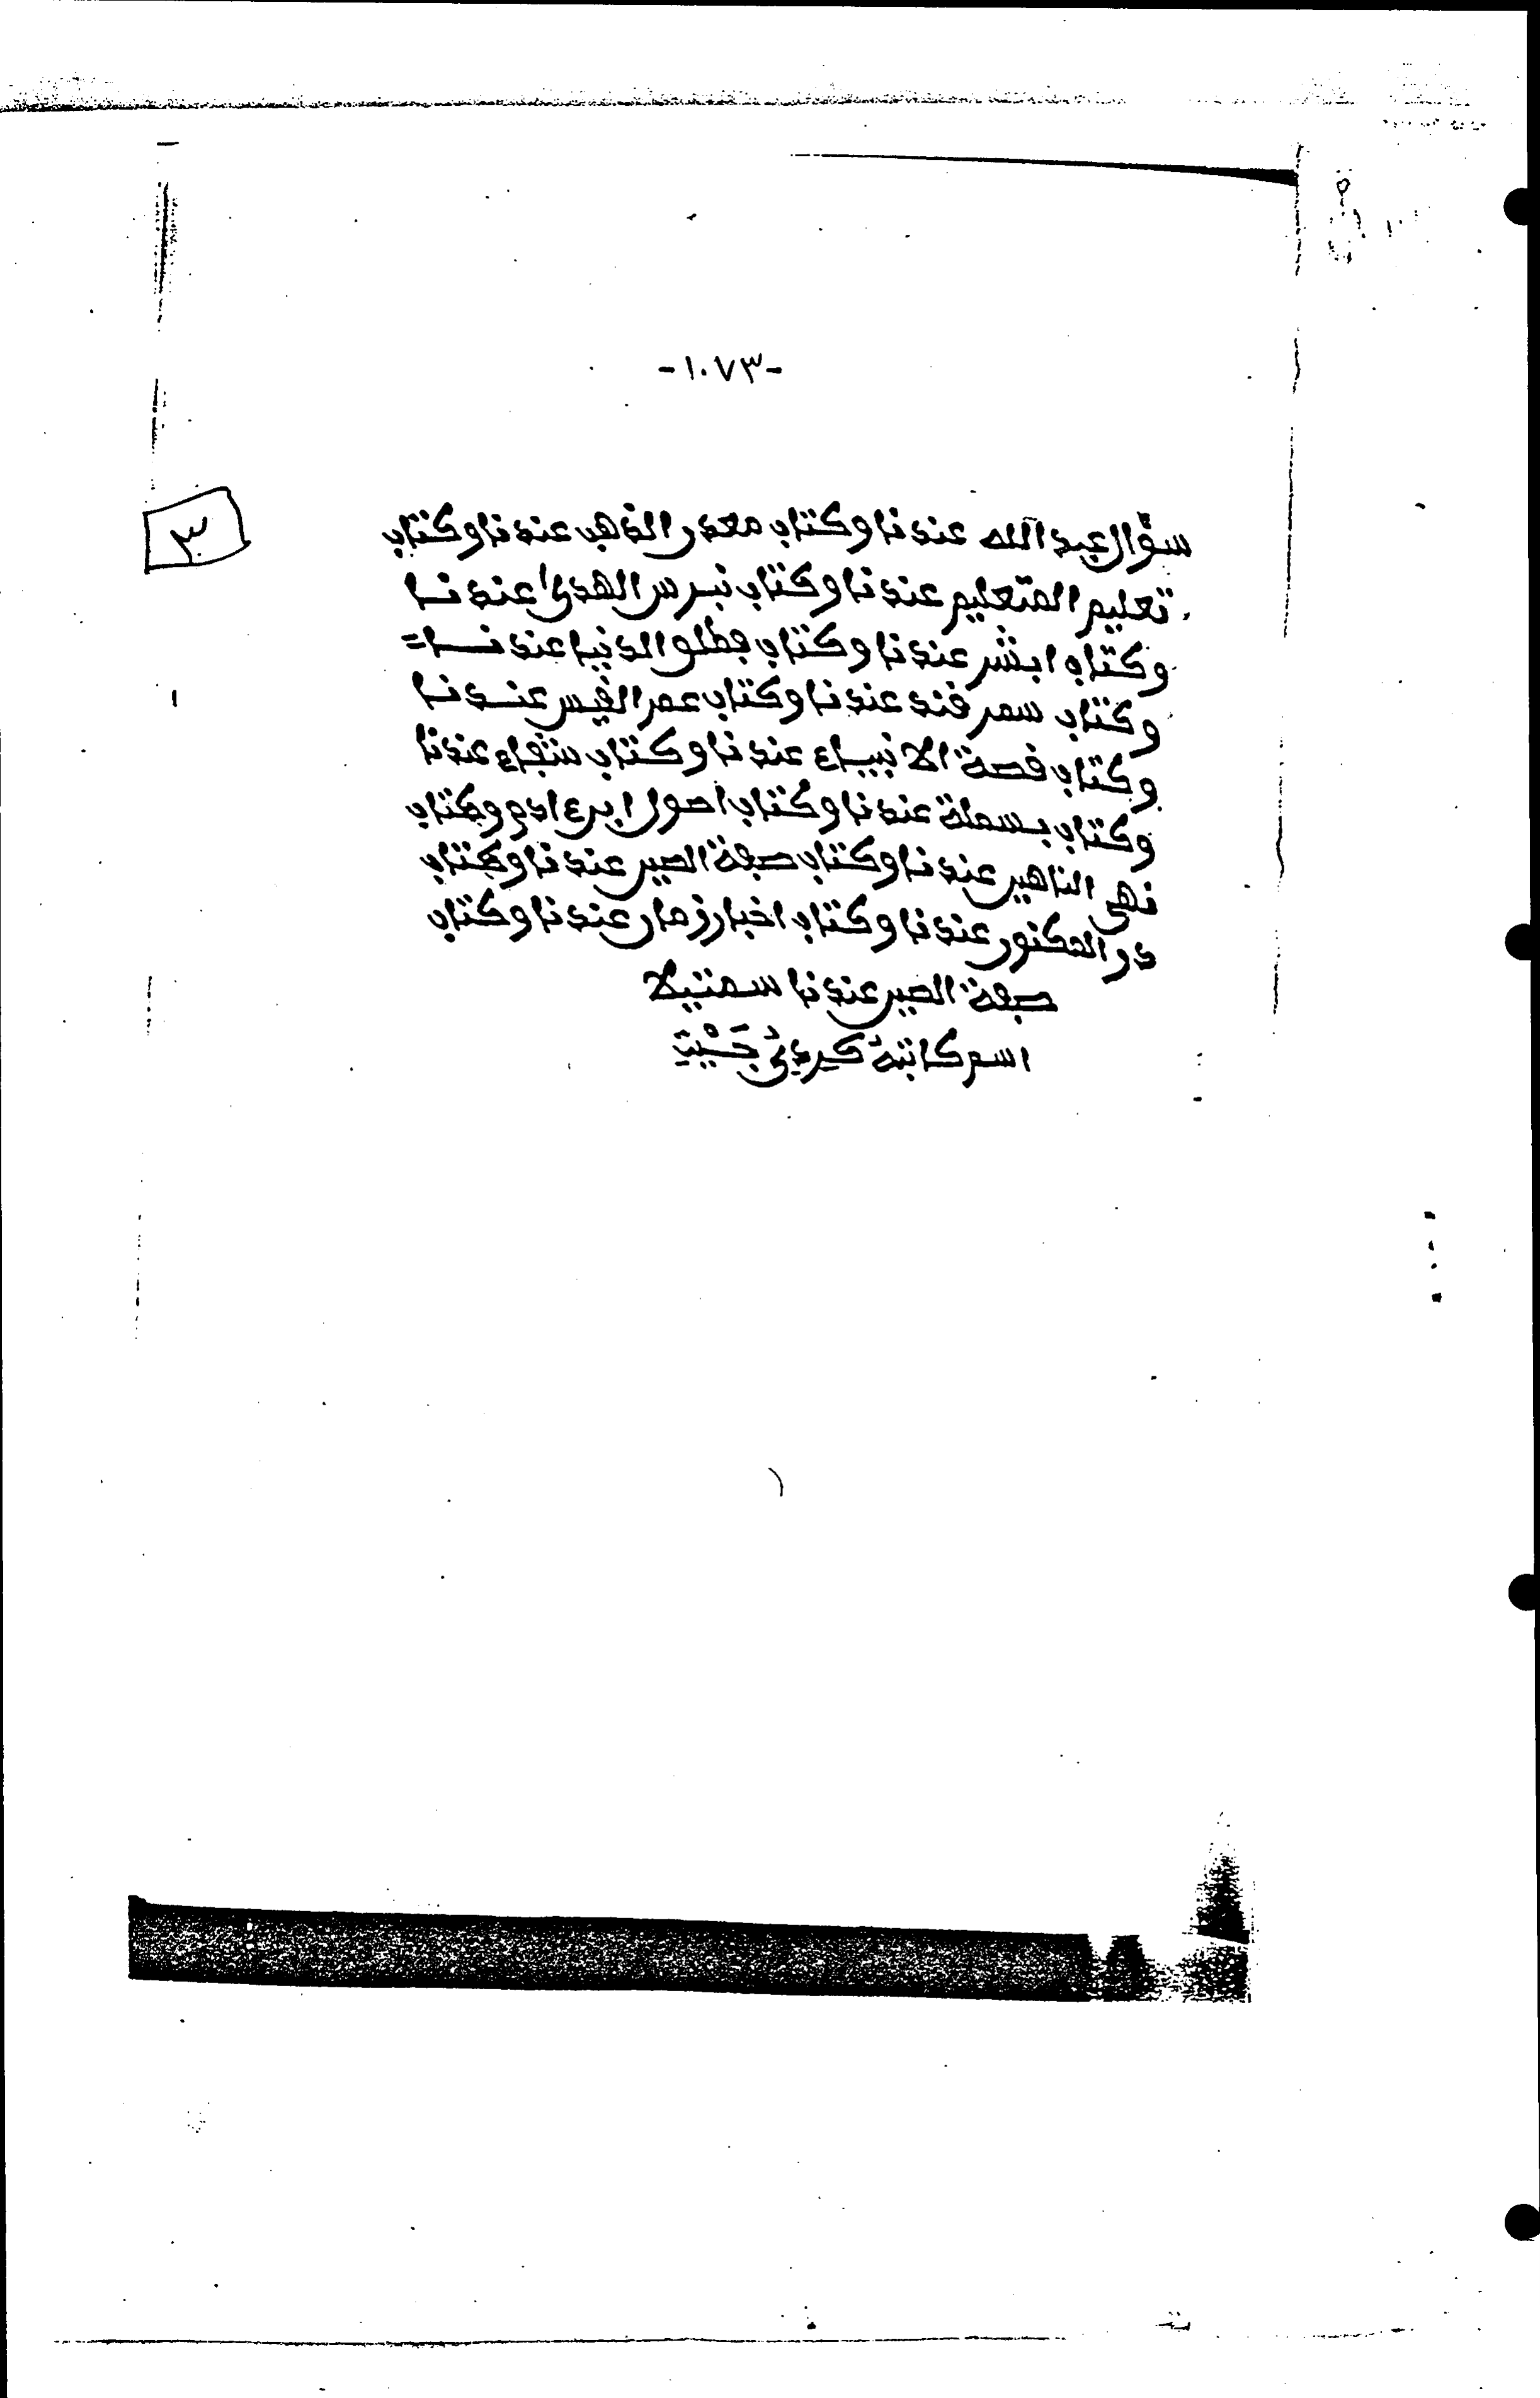 -١٠٧٣-
٣
سؤال عبد الله عندنا وكتاب معدن الذهب عندنا وكتاب
تعليم المتعليم عندنا وكتاب نبرس الهدى عندنا
وكتاب ابشر عندنا وكتاب فطلو الدنيا عندنا
وكتاب سمرقند عندنا وكتاب عمر القيس عندنا
وكتاب قصة الانبياء عندنا وكتاب شفاء عندنا
وكتاب بسملة عندنا وكتاب اصول ابرء ادم وكتاب
نهى الناهير عندنا وكتاب صفة الصير عندنا وكتاب
در المكنور عندنا وكتاب اخبار زمان عندنا وكتاب
صفة الصير عندنا سمتيلا
اسم كاتبه